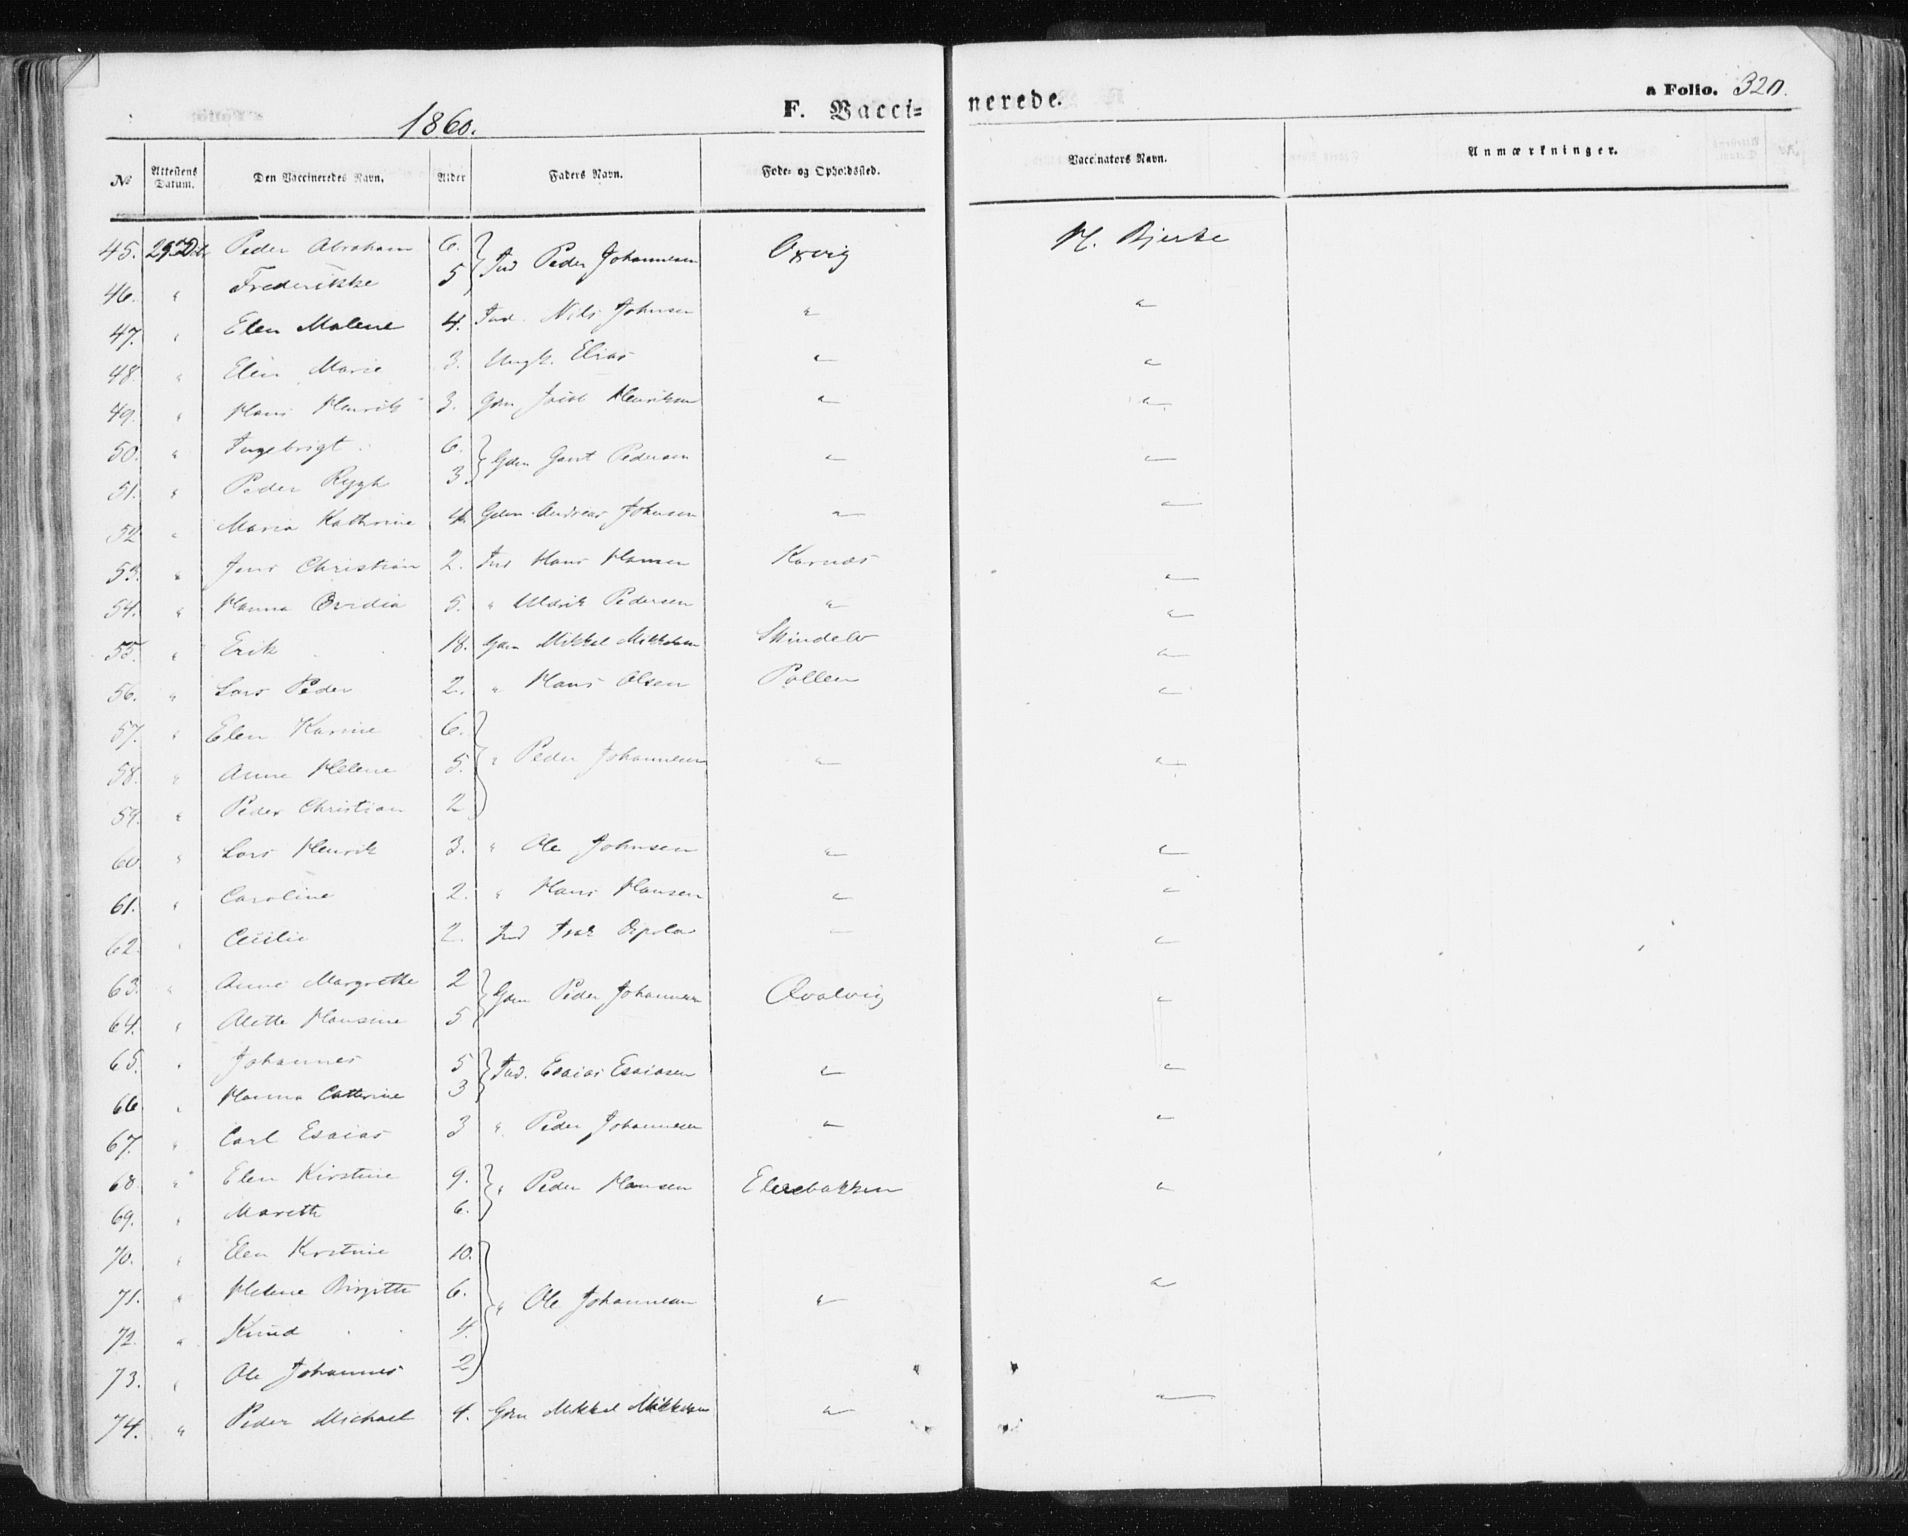 1860.
F. Vacci=nerede.
a Folio. 320.
No Attestens Datum. Den Vaccineredes Navn. Alder Faders Navn. Føde- og Opholdssted. Vaccinators Navn. Anmærkninger.
45. 29 Peder Abraham 6. Ind Peder Johannesen Oxvig H. Bjerke
46. " Frederikke 5
47. " Elen Malene 4. Ind. Nils Johnsen " "
48. " Elen Marie 3. Ungk. Elias " "
49. " Hans Henrik 3. Gdm Jacob Henriksen " "
50. " Ingebrigt 6. Gdm Pedersen " "
51. " Peder Rygh 3.
52 " Maria Kathrine 4. Gdm Andreas Johnsen " "
53. " Jens Christian 2. Ind Hans Hansen Karnæs "
54. " Hanna Ovidia 5. " Uldrik Pedersen " "
55. " Erik 18. Gdm Mikkel Mikkelsen Skindelv "
56. " Lars Peder 2. " Hans Olsen Pollen "
57. " Elen Karine 6.
58. " Anne Helene 5. " Peder Johannesen " "
59. " Peder Christian 2
60 " Lars Henrik 3. " Ole Johnsen " "
61. " Caroline 2. " Hans Hansen " "
62. " Cecilie 2. Ind Isak " "
63. " Anne Margrethe 2 Gdm Peder Johannesen Qvalvig "
64. " Alette Hansine 5
65. " Johannes 5 Ind. Esaias Esaiasen " "
66 " Hanna Cathrine 3
67. " Carl Esaias 3 " Peder Johannesen " "
68. " Elen Kirstine 9. " Peder Hansen Elvebakken "
69. " Mareth 6.
70. " Elen Kirstine 10.
71. " Helene Birgitte 6. " Ole Johannesen " "
72. " Knud 4.
73. " Ole Johannes 2
74. " Peder Michael 4. Gdm Mikkel Mikkelsen " "